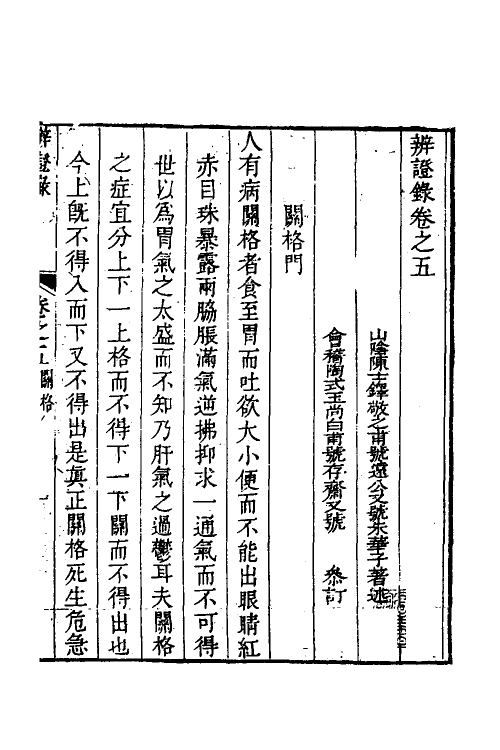 辨證錄卷之五
山陰陳士鐸敬之甫號遠公又號朱華子著述
會稽陶式玉尚白甫號存齋又號　參訂
關格門
人有病關格者食至胃而吐欲大小便而不能出眼睛紅
赤目珠暴露兩脇脹滿氣逆拂抑求一通氣而不可得
世以爲胃氣之太盛而不知乃肝氣之過鬱耳夫關格
之症宜分上下一上格而不得下一下關而不得出也
今上旣不得入而下又不得出是眞正關格死生危急
辨證錄
卷之五 關格